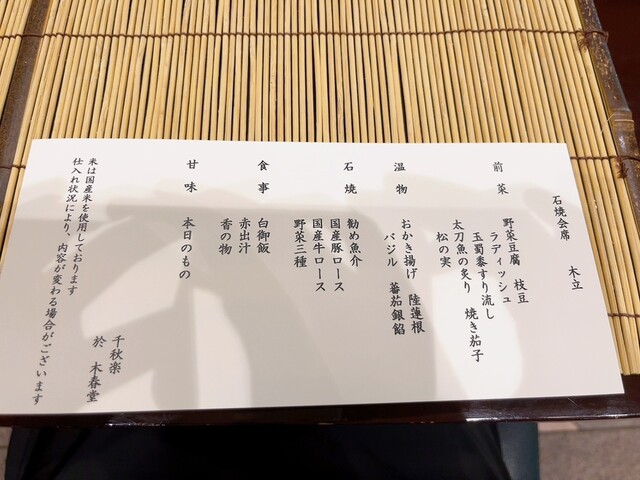 石焼会席　木立
前菜　野菜豆腐　枝豆
ラディッシュ
玉蜀黍すり流し
太刀魚の炙り　焼き茄子
松の実
温物　おかき揚げ　陸蓮根
バジル　蕃茄銀餡
石焼　勧め魚介
国産豚ロース
国産牛ロース
野菜三種
食事　白御飯
赤出汁
香の物
甘味　本日のもの
米は国産米を使用しております
仕入れ状況により、内容が変わる場合がございます
千秋楽
於　木春堂